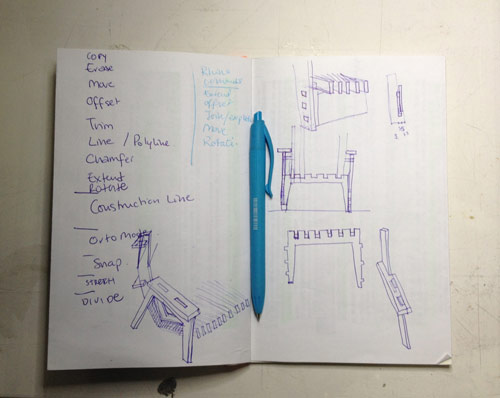 COPY
Erase
Move
Offset
Trim
Line / Polyline
Chamfer
Extend
Rotate
Construction Line
Orto Mode
Snap
STRETCH
DIVIDE
Extend
offset
Move